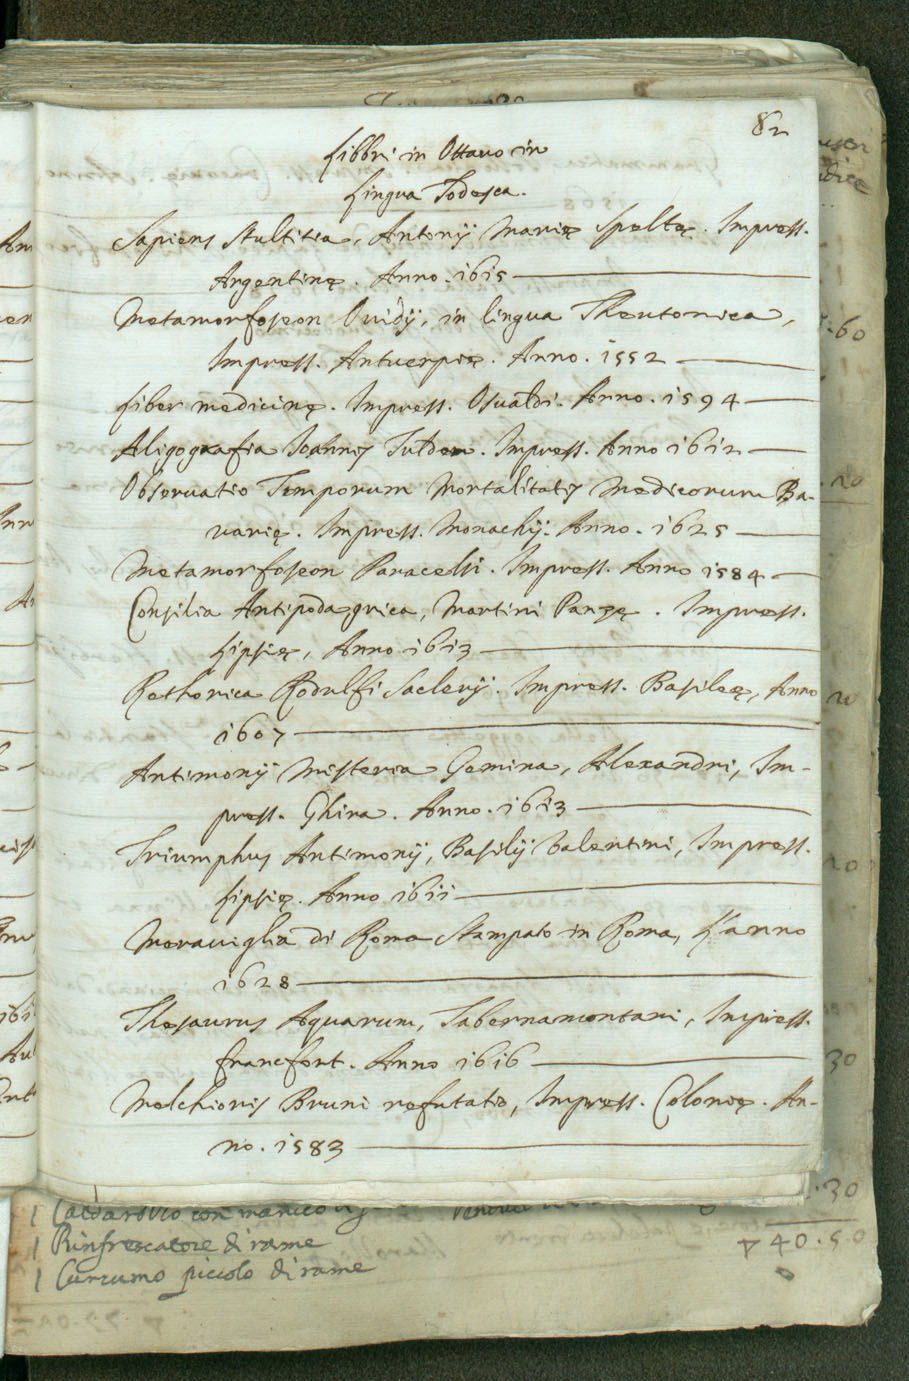 82
Libbri in Ottauo in
Lingua Todesca.
Sapiens stultitia, Antonij Marię Spaltę. Impress.
Argentinę. Anno. 1615
Metamorfoseon Ouidij, in lingua Theutonica,
Impress. Antuerpię. Anno. 1552
Liber medicinę. Impress. Osualdi. Anno. 1594
Aligografia Ioannis Sutdor. Impress. Anno 1612
Obseruatio Temporum Mortalitatis Medicorum Ba-
uarię. Impress. Monachij. Anno. 1625
Metamorfoseon Paracelsi. Impress. Anno 1584
Consilia Antipodagrica, Martini Panzę. Impress.
Lipsię, Anno. 1613
Rethorica Rodulfi Saclerij. Impress. Basileę, Anno
1607
Antimonij Misteria Gemina, Alexandri, Im-
press. Ghira. Anno. 1613
Triumphus Antimonij, Basilij Valentini, Impress.
Lipsię. Anno 1611
Merauiglia di Roma Stampato in Roma, L'anno
1628
Thesaurus Aquarum, Tabernamontani, Impress.
francfort. Anno 1616
Melchioris Bruni refutatio, Impress. Colonię. An-
no. 1583
60
20
20
20
30
30
1 Caldarolo con manico
1 Rinfrescatore di rame
1 Curcumo piccolo di rame
40.50